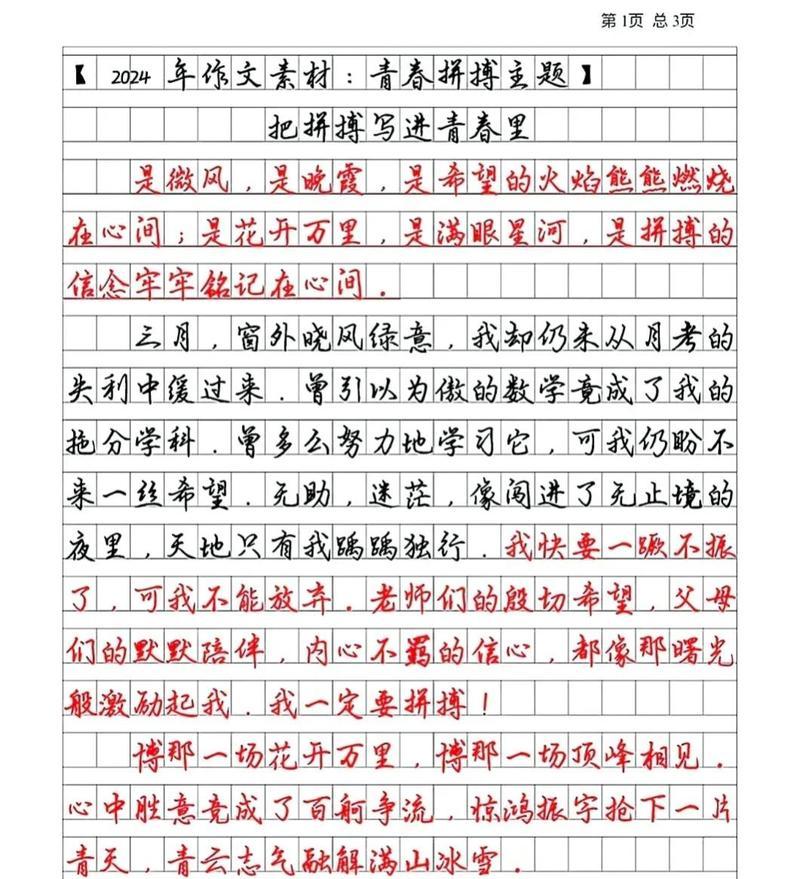 第1页 总3页
【 2024 年作文素材：青春拼搏主题】
把拼搏写进青春里
是微风，是晚霞，是希望的火焰熊熊燃烧
在心间；是花开万里，是满眼星河，是拼搏的
信念牢牢铭记在心间．
三月，窗外晓风绿意，我却仍未从月考的
失利中缓过来．曾引以为傲的数学竟成了我的
拖分学科．曾多么努力地学习它，可我仍盼不
来一丝希望．无助，迷茫，像闯进了无止境的
夜里，天地只有我踽踽独行．我快要一蹶不振
了，可我不能放弃．老师们的殷切希望，父母
们的默默陪伴，内心不羁的信心，都像那曙光
般激励起我．我一定要拼搏！
博那一场花开万里，博那一场顶峰相见．
心中胜意竟成了百舸争流，惊鸿振宇抢下一片
青天，青云志气融解满山冰雪．